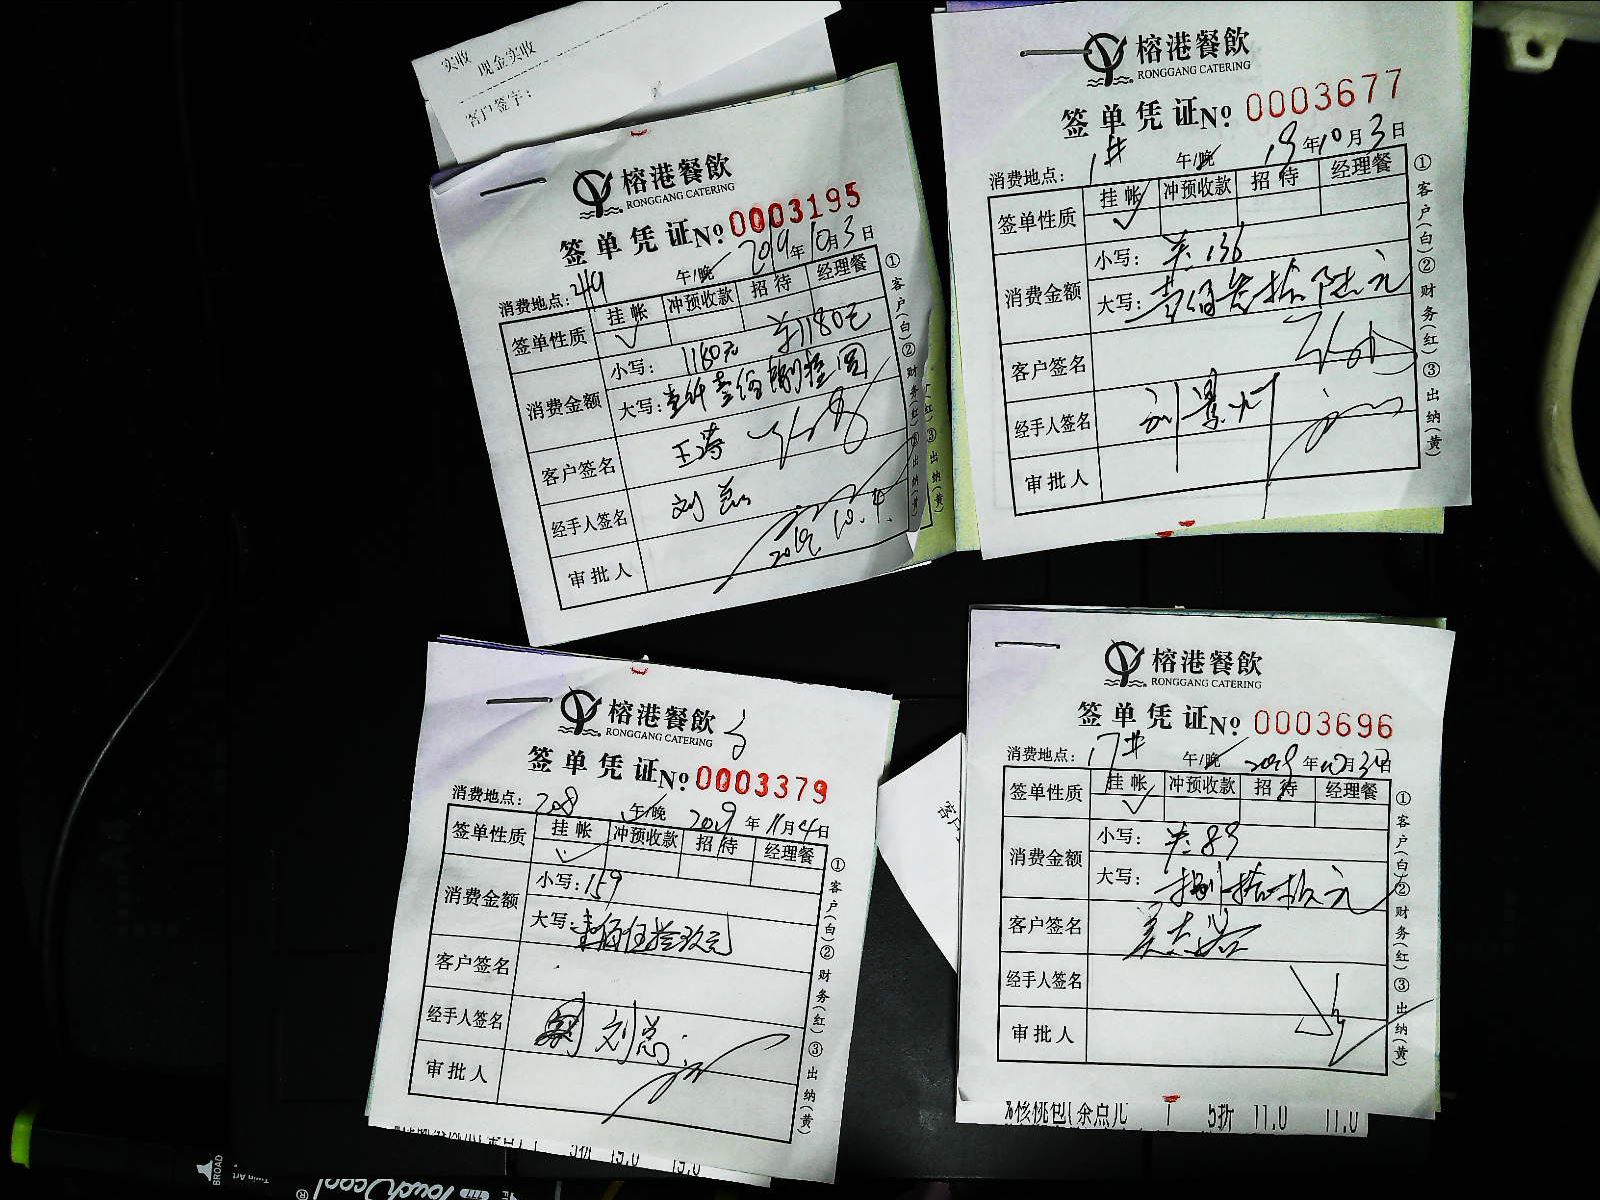 实收 现金实收
客户签字：
榕港餐飲
RONGGANG CATERING
签单凭证№ 0003195
消费地点： 午/晚 2019年10月3日
签单性质 挂帐 冲预收款 招待 经理餐
消费金额 小写： 1180元 1180元
大写：壹仟壹佰捌拾圆
客户签名 王涛
经手人签名 刘总
审批人 2019.10.4.
①客户(白)②财务(红)③出纳(黄)
榕港餐飲
RONGGANG CATERING
签单凭证№ 0003677
消费地点： 1# 午/晚 19年10月3日
签单性质 挂帐 冲预收款 招待 经理餐
消费金额 小写： 136
大写：壹佰叁拾陆元
客户签名
经手人签名 刘景州
审批人
①客户(白)②财务(红)③出纳(黄)
榕港餐飲
RONGGANG CATERING
签单凭证№ 0003379
消费地点：208 午/晚 2019年11月4日
签单性质 挂帐 冲预收款 招待 经理餐
消费金额 小写：159
大写：壹佰伍拾玖元
客户签名
经手人签名 刘总
审批人
①客户(白)②财务(红)③出纳(黄)
榕港餐飲
RONGGANG CATERING
签单凭证№ 0003696
消费地点： 17# 午/晚 2019年10月3日
签单性质 挂帐 冲预收款 招待 经理餐
消费金额 小写： 89
大写： 捌拾玖元
客户签名
经手人签名
审批人
①客户(白)②财务(红)③出纳(黄)
核桃包(余点儿 1 5折 11.0 11.0
客户
BROAD
Twin
Touch cool